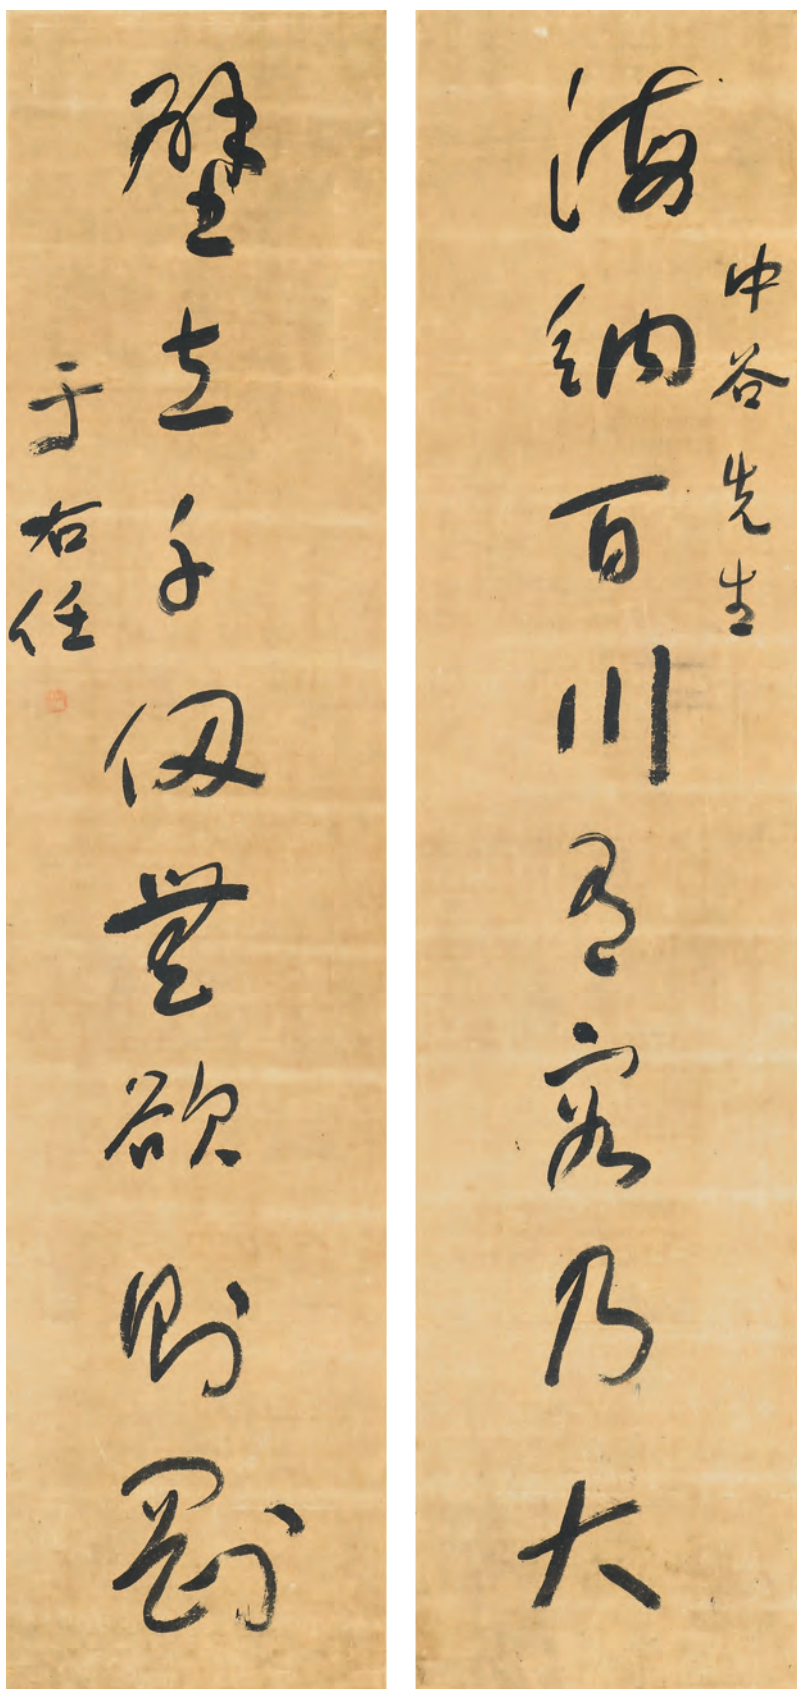 中谷先生
海納百川有容乃大
壁立千仞無欲則剛
于右任